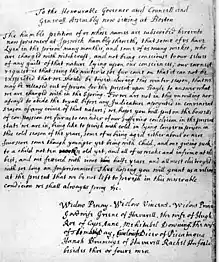 To the Honourable Governer and Councell and
Generall Assembly now sitting at Boston
The humble petition of us whose names are subscribed hereunto
now prisoners at Ipswich humbly sheweth, that some of us have
Lyen in the prison many months, and some of us many weekes, who
are charged with witchcraft, and not being consious to our selves
of any guilt of that nature lying upon our consciences; our earnest
request is that seing the winter is soe far come on that it can not be
expected that we should be tryed during this winter season, that we
may be released out of prison for the present upon Bayle to answer what
we are charged with in the Spring. For we are not in this unwilling nor
afrayd to abide the tryall before any Judicature apoynted in convenient
season of any crime of that nature; we hope you will put on the bowells
of compassion so far as to concider of our suffering condicion in the present
state we are in, being like to perish with cold in lying longer in prison in
this cold season of the yeare, some of us being aged either about or nere
fourscore some though younger yet being with Child, and one giving suck
to a child not ten weekes old yet, and all of us weake and infirme at the
best, and one fettered with irons this halfe yeare and all most distroyed
with soe long an Imprisonment. Thus hoping you will grant us a releas
at the present that we be not left to perish in this miserable
condicion we shall alwayes pray &c.
Widow Penny. Widow Vincent. Widow Prince
Goodwife Greene of Havarell, the wife of Hugh
Roe of Cape Anne, Mehitabel Downing. the wife
of Timothy Day, Goodwife Dicer of Piscataqua
Hanah Brumidge of Havarell Rachel Hafield
besides thre or foure men